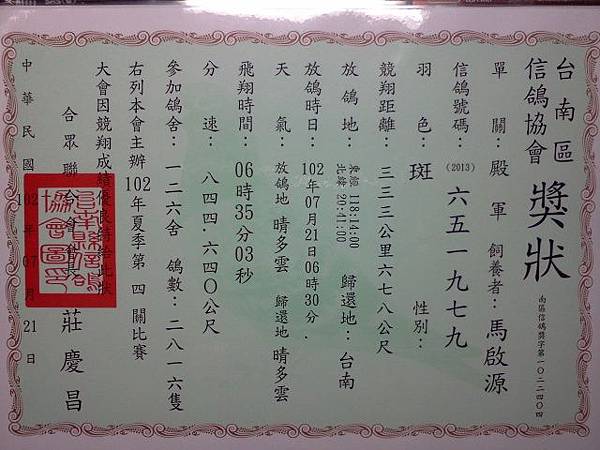 台南區
信鴿協會
獎狀
南區信鴿獎字第一〇二二四〇四
單關：殿軍 飼養者：馬啟源
信鴿號碼：(2013) 六五一九七九
羽色：斑 性別：
競翔距離：三三三公里六七八公尺
放鴿地：東經 118:14:00 北緯 20:41:00 歸還地：台南
放鴿時日：102年07月21日06時30分.
天氣：放鴿地 晴多雲 歸還地 晴多雲
飛翔時間：06時35分03秒
分速：八四四.六四〇公尺
參加鴿舍：一二六舍 鴿數：二八一六隻
右列本會主辦102年夏季第四關比賽
大會因競翔成績優良特給此狀
合眾聯合會會長 莊慶昌
中華民國102年07月21日